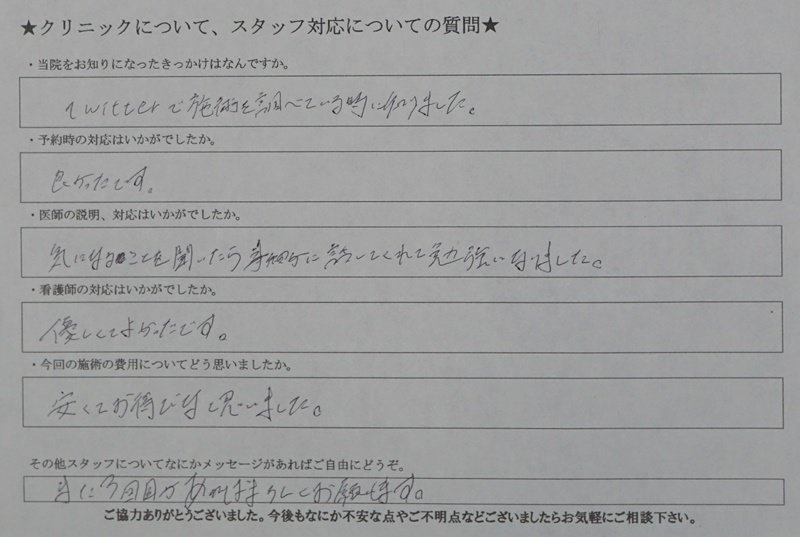 ★クリニックについて、スタッフ対応についての質問★
・当院をお知りになったきっかけはなんですか。
twitterで施術を調べている時に知りました。
・予約時の対応はいかがでしたか。
良かったです。
・医師の説明、対応はいかがでしたか。
気になることを聞いたら事細かに話してくれて勉強になりました。
・看護師の対応はいかがでしたか。
優しくてよかったです。
・今回の施術の費用についてどう思いましたか。
安くてお得だなと思いました。
その他スタッフについてなにかメッセージがあればご自由にどうぞ。
また3回目があればよろしくお願いします。
ご協力ありがとうございました。今後もなにか不安な点やご不明点などございましたらお気軽にご相談下さい。